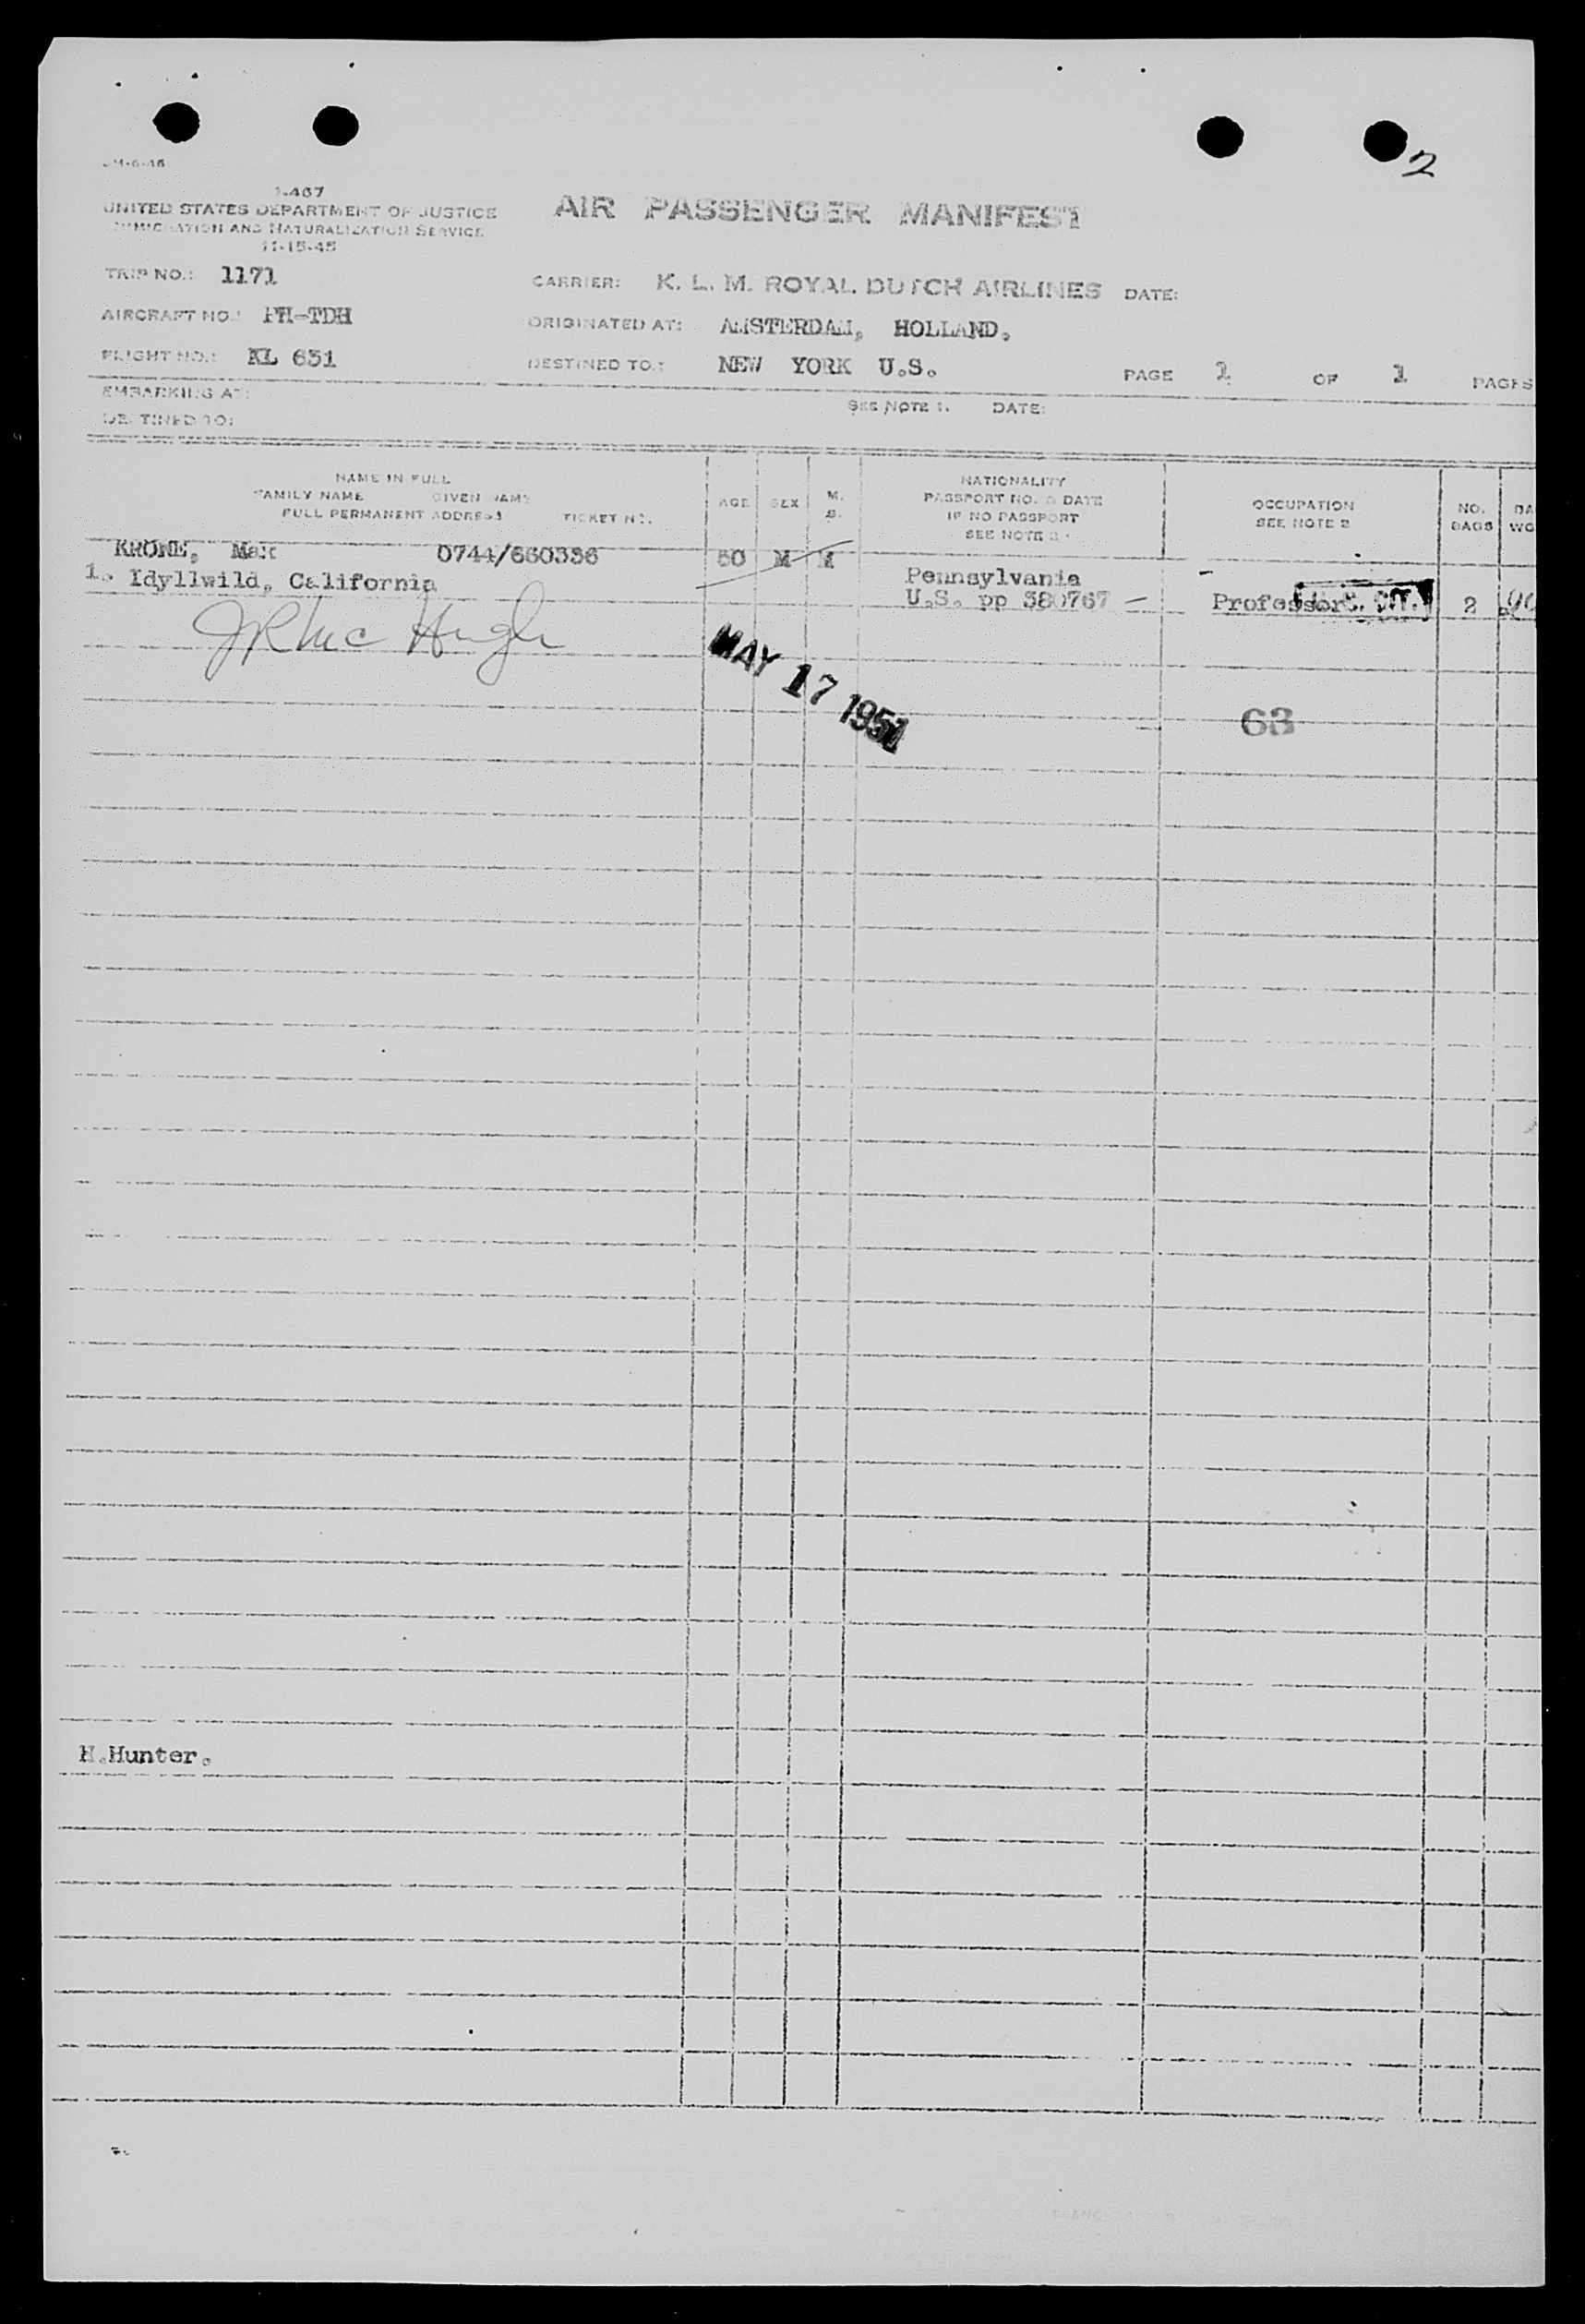 2
1-467
UNITED STATES DEPARTMENT OF JUSTICE
IMMIGRATION AND NATURALIZATION SERVICE
11-15-45
AIR PASSENGER MANIFEST
TRIP NO.: 1171
CARRIER: K. L. M. ROYAL DUTCH AIRLINES DATE:
AIRCRAFT NO.: PH-TDH
ORIGINATED AT: AMSTERDAM, HOLLAND,
FLIGHT NO.: KL 651
DESTINED TO.: NEW YORK U.S.
PAGE 1 OF 1 PAGES
EMBARKING AT:
SEE NOTE 1. DATE:
DESTINED TO:
NAME IN FULL
FAMILY NAME GIVEN NAME
FULL PERMANENT ADDRESS TICKET NO.
AGE SEX M. S.
NATIONALITY
PASSPORT NO. & DATE
IF NO PASSPORT
SEE NOTE 3
OCCUPATION
SEE NOTE 2
NO. BAGS
KRONE, Max 0744/660336 50 M M
1. Idyllwild, California
Pennsylvania
U.S. pp 380767 —
Professor 2
JR Mc Hugh
MAY 17 1951
63
H.Hunter.